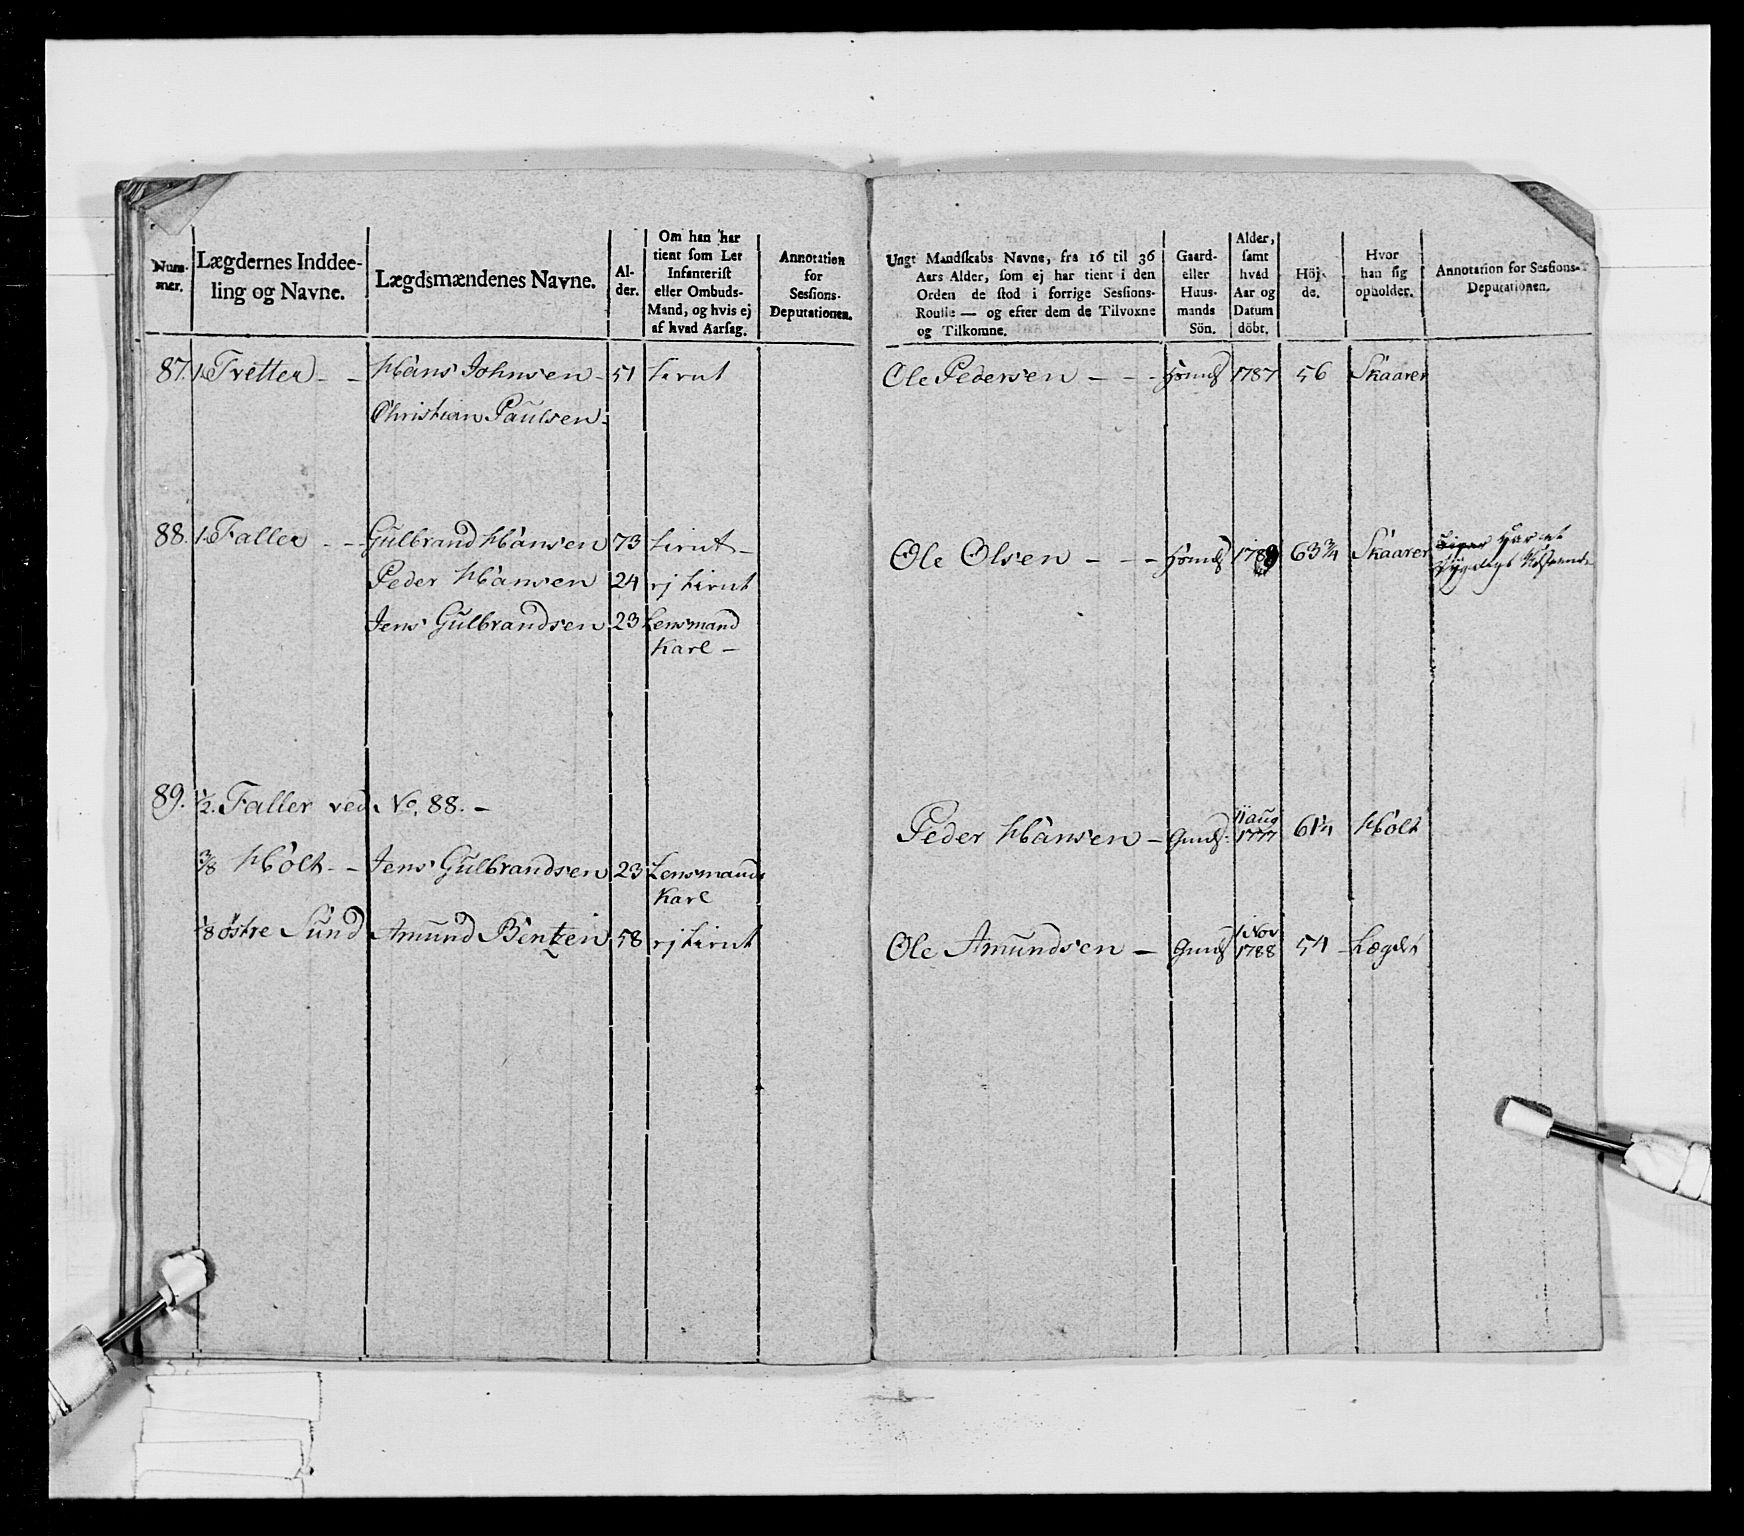 Num-
mer.
Lægdernes Inddee-
ling og Navne.
Lægdsmændenes Navne.
Al-
der.
Om han har
tient som Let
Infanterist
eller Ombuds-
Mand, og hvis ej
af hvad Aarsag.
Annotation
for
Sessions-
Deputationen.
87. 1. Tretten - - Hans Johnsen - 51 tient
Christian Paulsen.
88. 1. Faller - - Gulbrand Hansen 73 tient -
Peder Hansen 24 ej tient
Jens Gulbrandsen 23 Lensmand
Karl -
89. 1/2. Faller ved No. 88. -
3/8 Holt - - Jens Gulbrandsen 23 Lensmands
Karl
1/8 østre Sund Amund Bentzen 58 ej tient
Ungt Mandskabs Navne, fra 16 til 36
Aars Alder, som ej har tient i den
Orden de stod i forrige Sessions-
Roulle — og efter dem de Tilvoxne
og Tilkomne.
Gaard-
eller
Huus-
mands
Sön.
Alder,
samt
hvad
Aar og
Datum
döbt.
Höj-
de.
Hvor
han sig
opholder.
Annotation for Sessions-
Deputationen.
Ole Pedersen - - - 1787 56 Skaarer
Ole Olsen - - - 63 3/4 Skaarer
Peder Hansen - Gmds. 11 aug
1777 61 1/4 Holt
Ole Amundsen - Gmds 1 Nov
1788 54 Lægdet